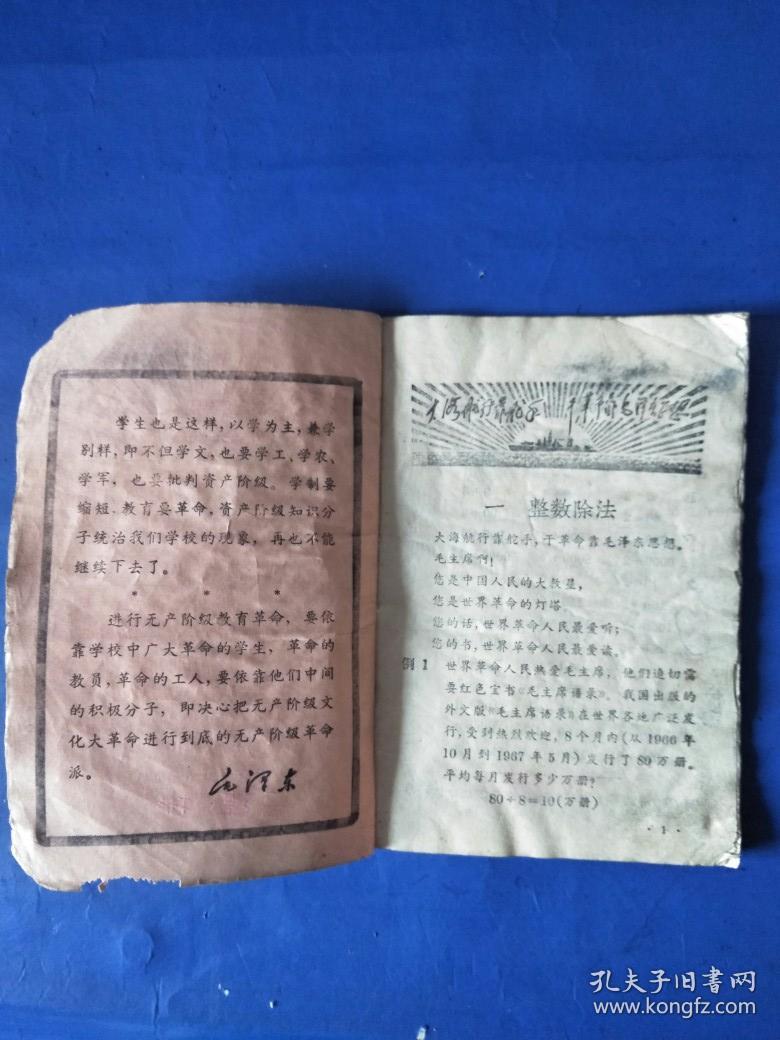 学生也是这样，以学为主，兼学
别样，即不但学文，也要学工、学农、
学军，也要批判资产阶级。学制要
缩短，教育要革命，资产阶级知识分
子统治我们学校的现象，再也不能
继续下去了。
* * *
进行无产阶级教育革命，要依
靠学校中广大革命的学生，革命的
教员，革命的工人，要依靠他们中间
的积极分子，即决心把无产阶级文
化大革命进行到底的无产阶级革命
派。
毛泽东
大海航行靠舵手 干革命靠毛泽东思想
一 整数除法
大海航行靠舵手，干革命靠毛泽东思想。
毛主席啊！
您是中国人民的大救星，
您是世界革命的灯塔。
您的话，世界革命人民最爱听；
您的书，世界革命人民最爱读。
例1 世界革命人民热爱毛主席，他们迫切需
要红色宝书《毛主席语录》。我国出版的
外文版《毛主席语录》在世界各地广泛发
行，受到热烈欢迎，8个月内（从1966年
10月到1967年5月）发行了80万册。
平均每月发行多少万册？
80÷8=10（万册）
·1·
孔夫子旧书网
www.kongfz.com